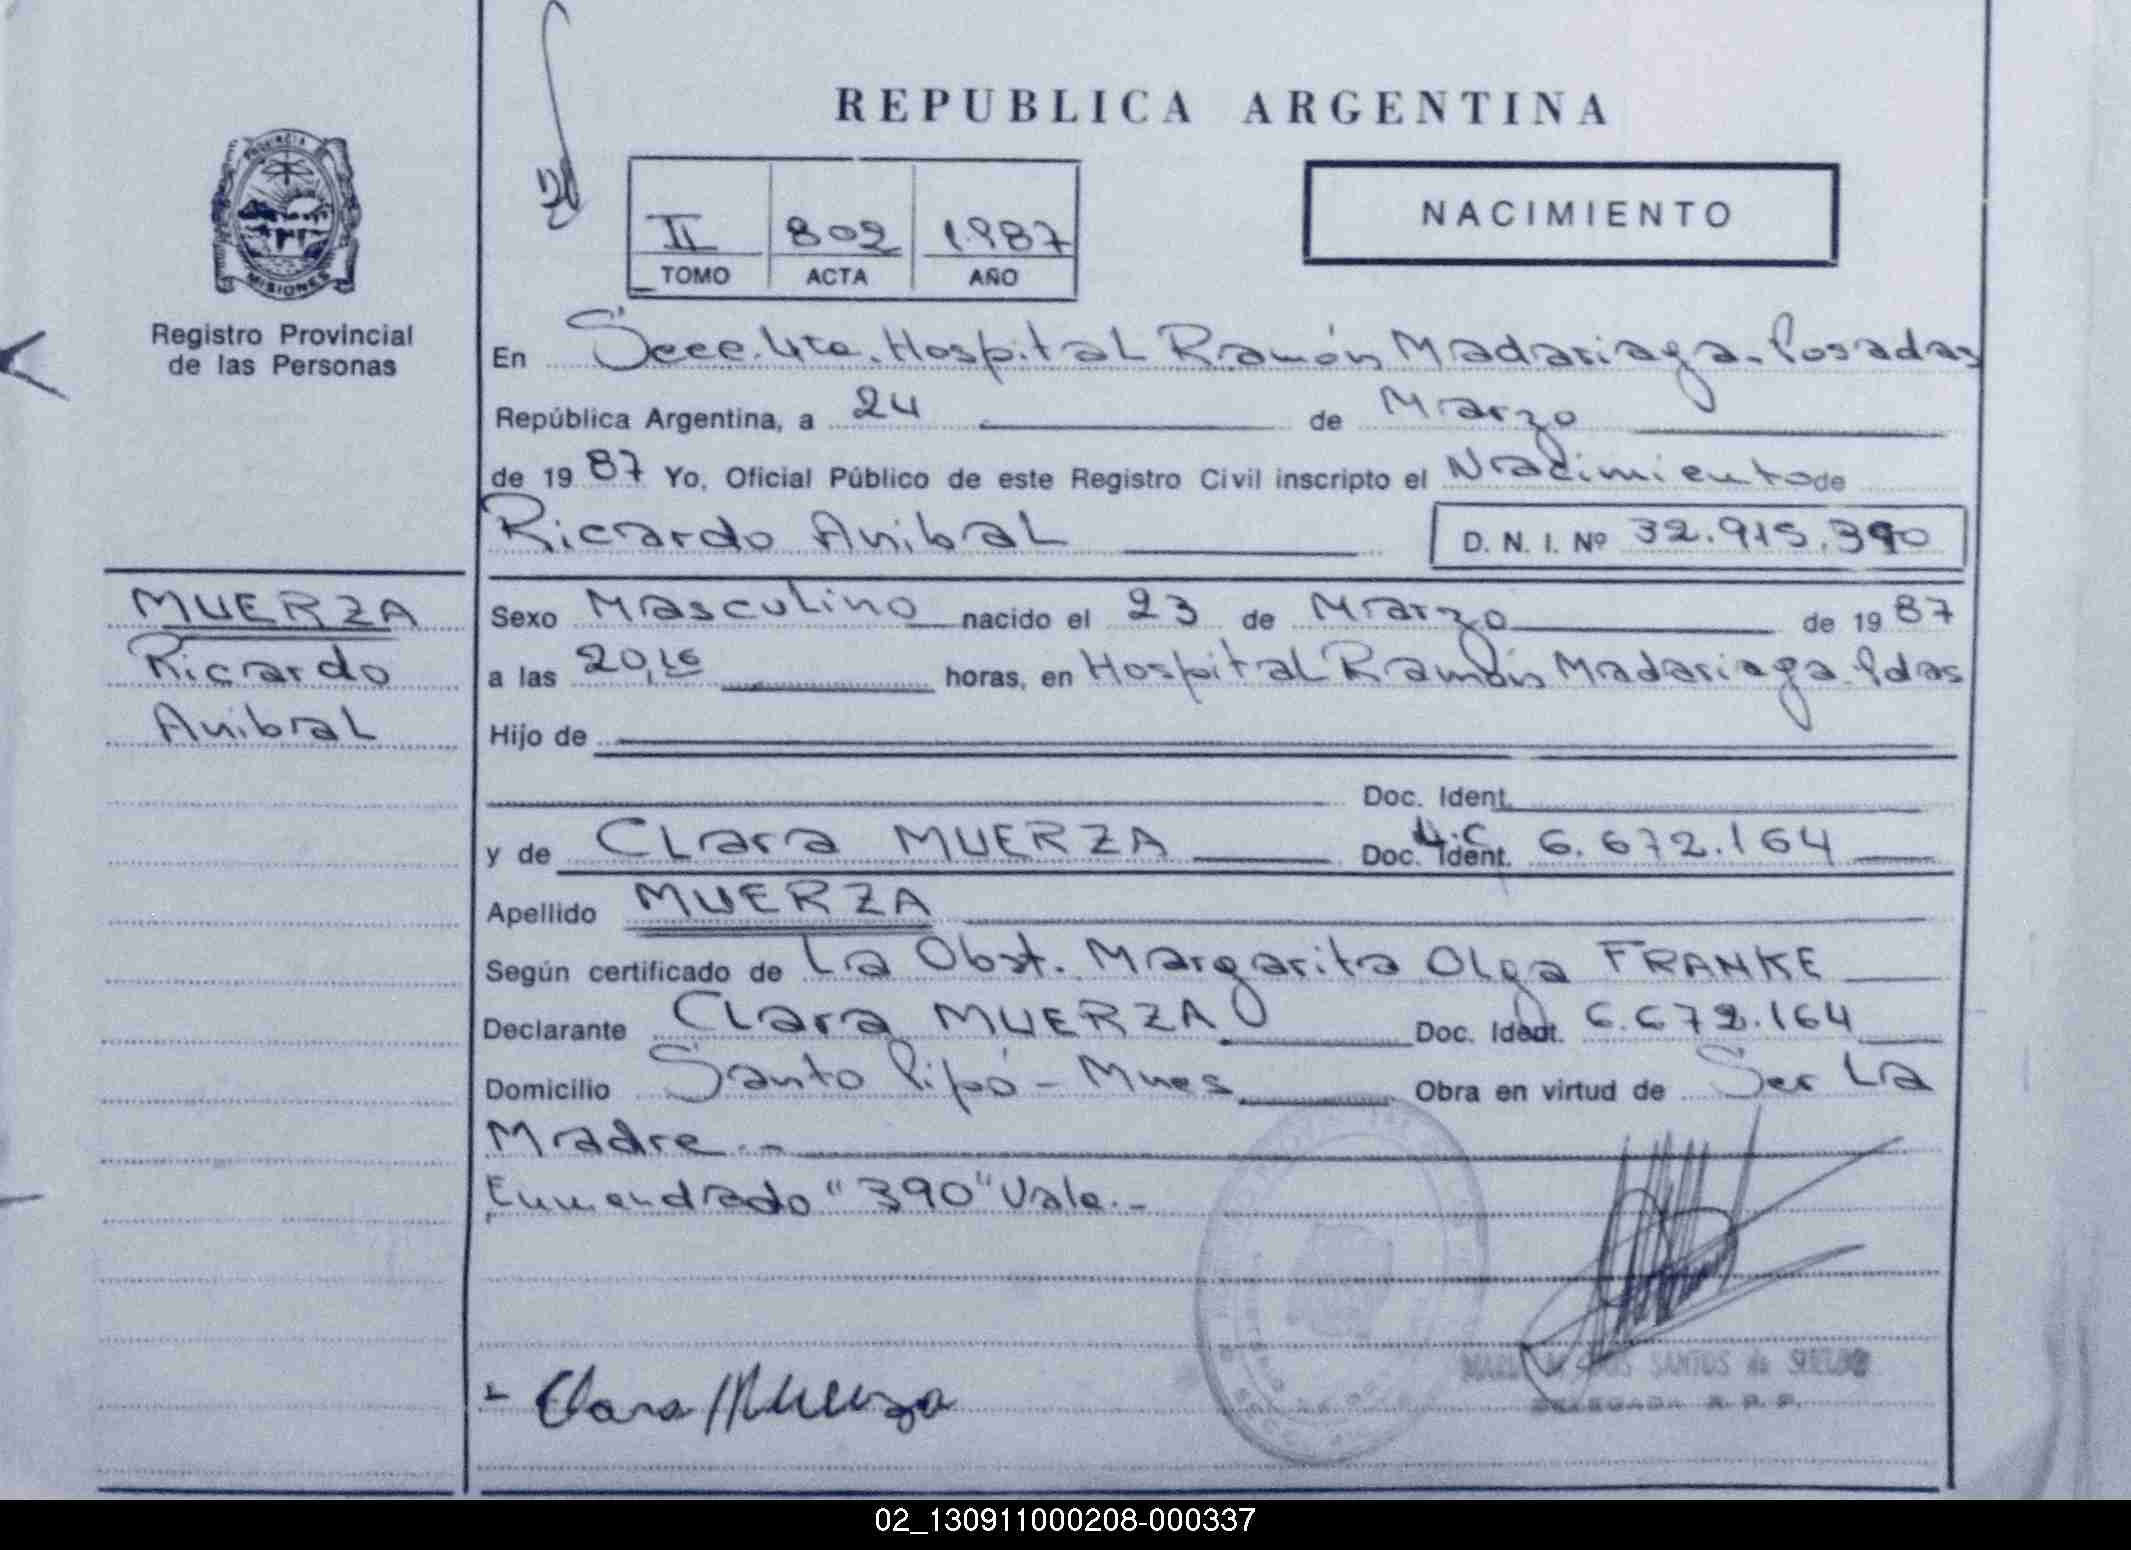 REPUBLICA ARGENTINA
PROVINCIA
MISIONES
Registro Provincial
de las Personas
II 802 1987
TOMO ACTA AÑO
NACIMIENTO
En Secc. 4ta. Hospital Ramón Madariaga. Posadas
República Argentina, a 24 de Marzo
de 1987 Yo, Oficial Público de este Registro Civil inscripto el Nacimiento de
Ricardo Anibal D. N. I. Nº 32.915.390
MUERZA
Ricardo
Anibal
Sexo Masculino nacido el 23 de Marzo de 1987
a las 20,15 horas, en Hospital Ramón Madariaga. Pdas
Hijo de
Doc. Ident.
y de Clara MUERZA Doc. Ident. L.C 6.672.164
Apellido MUERZA
Según certificado de La Obst. Margarita Olga FRANKE
Declarante Clara MUERZA Doc. Ident. 6.672.164
Domicilio Santo Pipó - Mnes Obra en virtud de Ser La
Madre.-
Enmendado "390" Vale.-
Clara Muerza
SANTOS de
DELEGADA R. P. P.
02_130911000208-000337